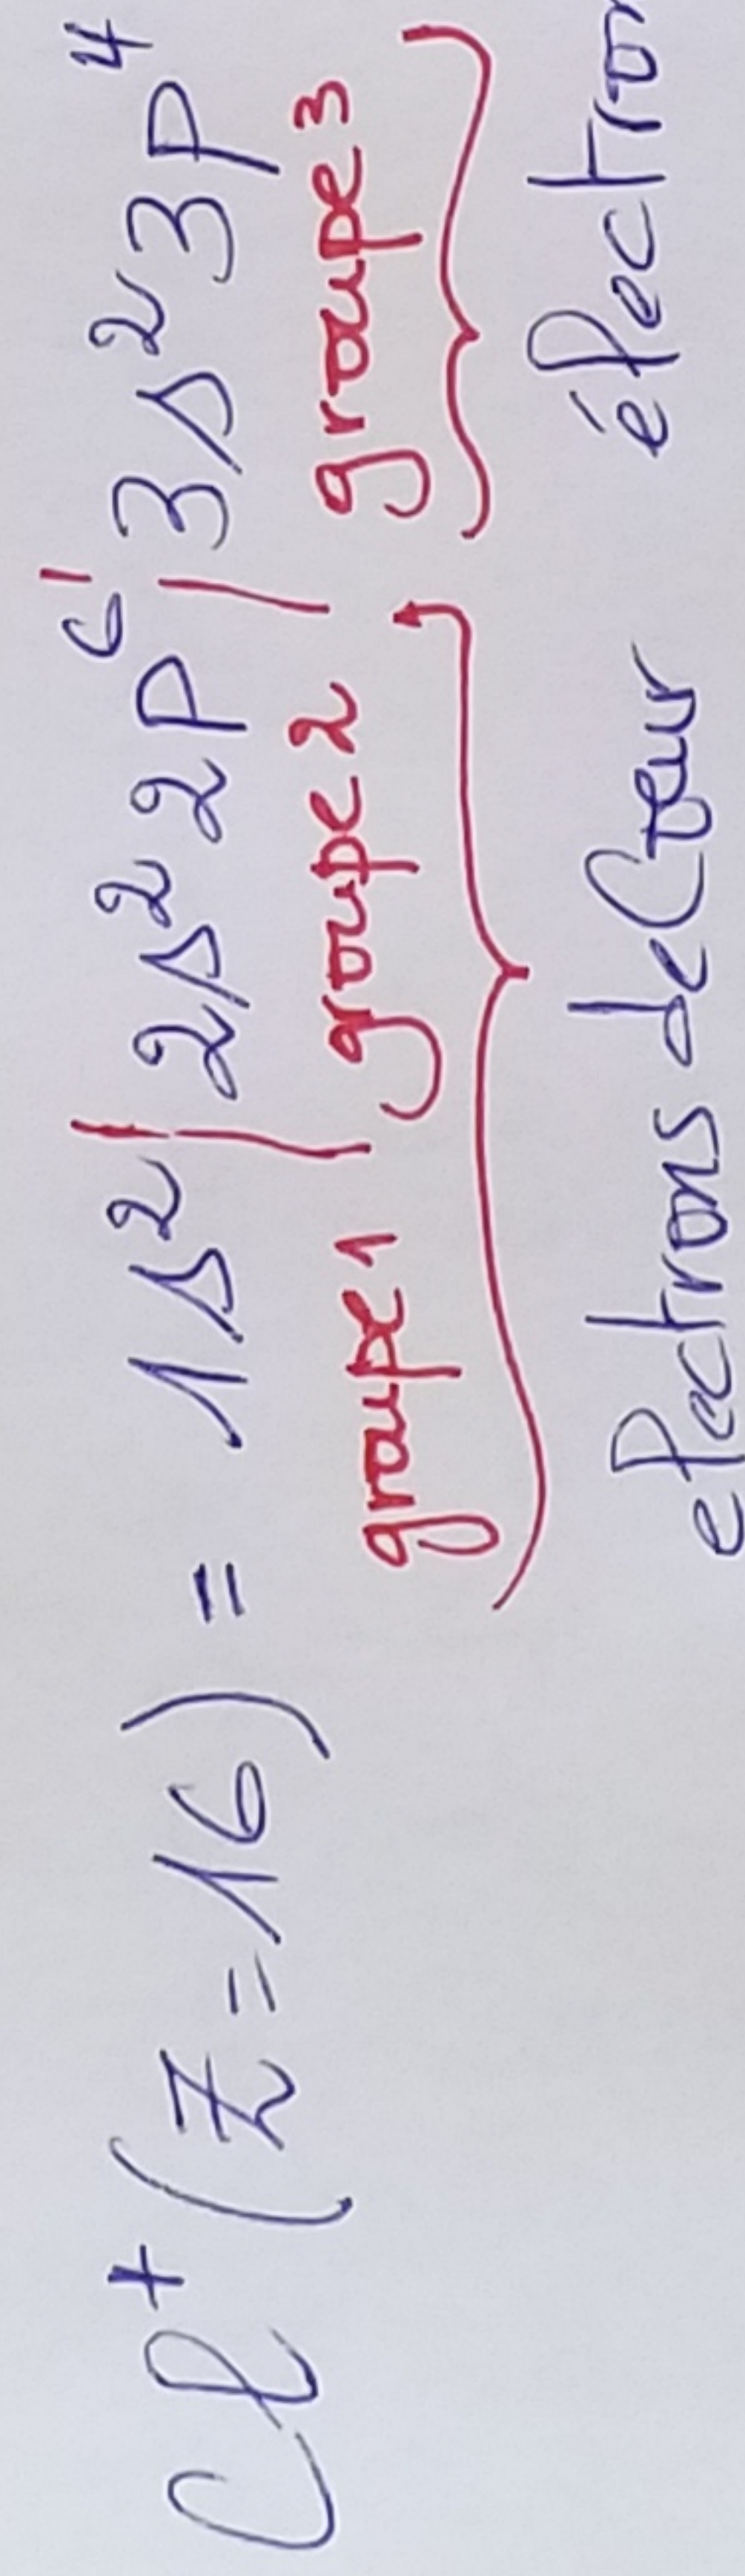 Cl⁺ (Z=16) = 1s² | 2s² 2p⁶ | 3s² 3p⁴
groupe 1 groupe 2 groupe 3
electrons de Cœur électron